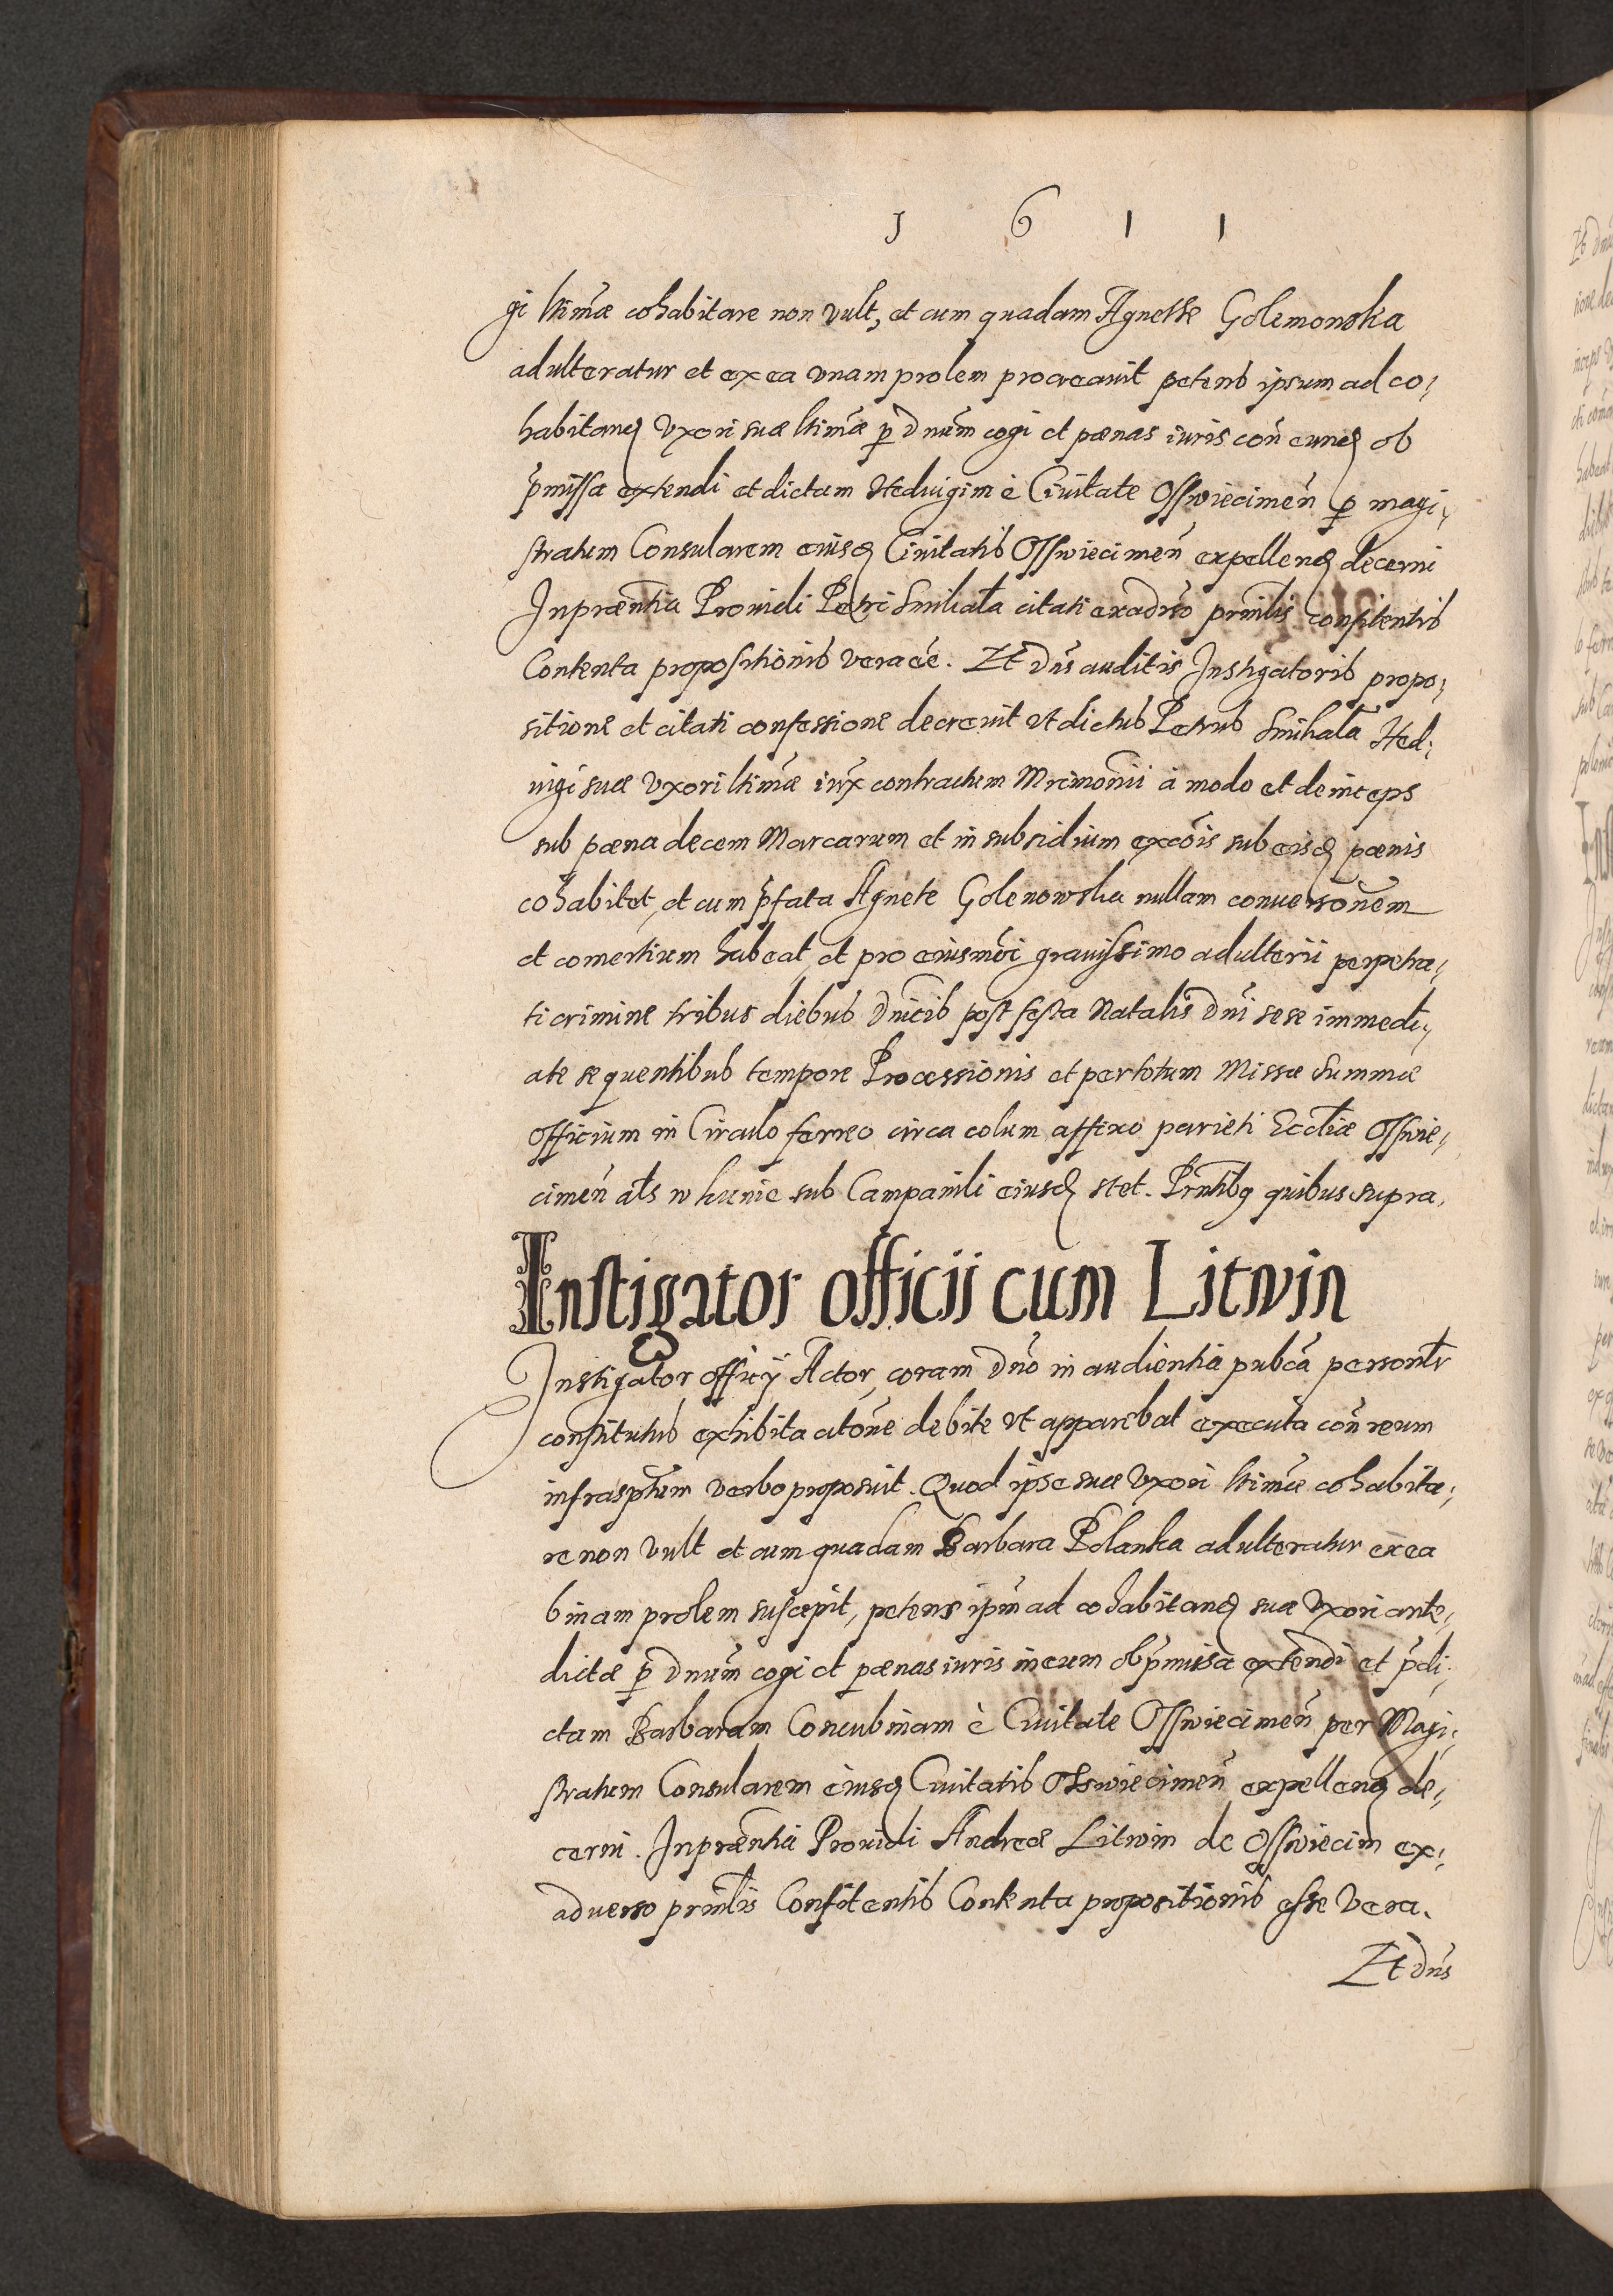 1 6 1 1
gi ltimæ cohabitare non vult, et cum quadam Agnethe Golemonska
adulteratur et ex ea vnam prolem procreauit petens ipsum ad co,
habitand Vxori suæ ltimæ p dnum cogi et pænas iuris con eund ob
pmissa extendi et dictam Heduigim è Ciuitate Osswiecimen p magi,
stratum Consularem eiusd Ciuitatis Osswiecimen expellend decerni
In præntia Prouidi Petri Smihala citati exadrso prntis confitentis
Contenta propositionis vera ee. Et dns auditis Instigatoris propo,
sitione et citati confessione decreuit vt dictus Petrus Smihala Hed,
uigi suæ Vxori ltimæ iux contractum Mrimonii à modo et deinceps
sub pæna decem Marcarum et in subsidium excois sub eisd pænis
cohabitet, et cum pfata Agnete Golenowska nullam conuersonem
et comertium habeat, et pro eiusmoi grauissimo adulterii perpetra,
ti crimine tribus diebus dnicis post festa Natalis dni sese immedi,
ate sequentibus tempore Processionis et per totum Missæ Summæ
Officium in Circulo ferreo circa colum affixo parieti Eccliæ Osswie,
cimen als w kunie sub Campanili eiusd stet. Prntibq quibus supra.
Instigator officii cum Litwin
Instigator officij Actor, coram dno in audientia pubca personlr
constitutus exhibita citone debite vt apparebat executa con reum
infrasptum verbo proposuit. Quod ipse suæ Vxori ltimæ cohabita,
re non vult et cum quadam Barbara Polanka adulteratur ex ea
binam prolem suscepit, petens ipm ad cohabitand suæ Vxori ante,
dictæ p dnum cogi et pænas iuris in eum ob pmissa extendi et pdi,
ctam Barbaram Concubinam è Ciuitate Osswiecimen per Magi,
stratum Consularem eiusd Ciuitatis Osswiecimen expellend de,
cerni. In præntia Prouidi Andreæ Litwin de Osswiecim ex,
aduerso prntis Confitentis Contenta propositionis esse vera.
Et dns